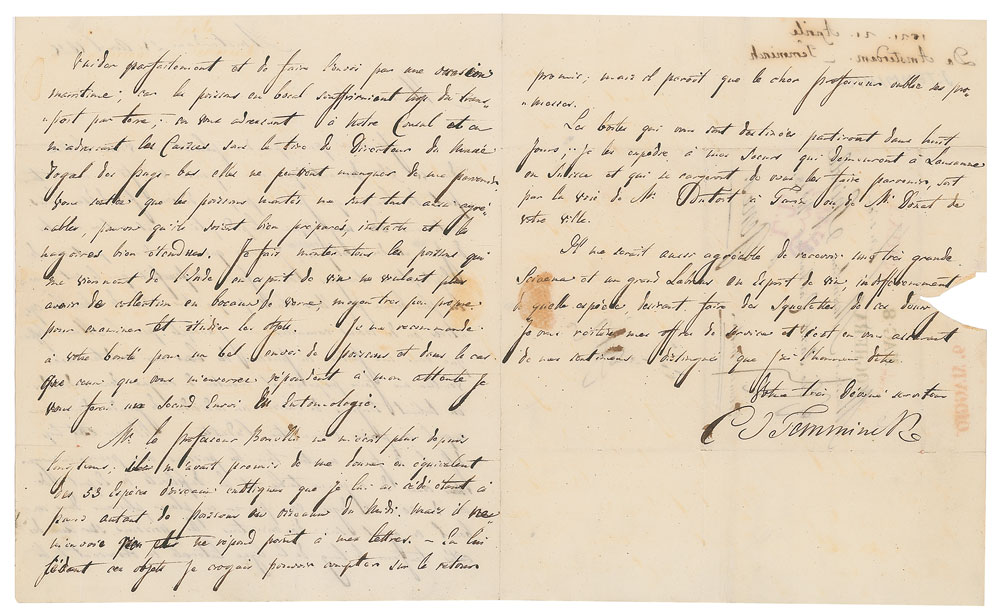 Vuider parfaitement et de faire l'envoi par une occasion
maritime; car les poissons en bocal souffriraient trop du trans,
"port par terre; en vous adressant à notre Consul et en
m'adressant les Caisses sous le titre de Directeur du Musée
Royal des pays-bas elles ne peuvent manquer de me parvenir.
que les poissons montés me sont tout aussi agré,
"ables, pourvu qu'ils soient bien préparés, intacts et les
nagoires bien étendues. Je fais monter tous les poissons qui
me viennent de l'Inde en esprit de vin ne voulant plus
avoir de collection en bocaux de verre, moyen très peu propre
pour examiner et étudier les objets. Je me recommande
à votre bonté pour un bel envoi de poissons et dans le cas
que ceux que vous m'enverrez répondent à mon attente je
vous ferai un second Envoi en Entomologie.
Mr. le professeur Bonelli ne m'écrit plus depuis
longtems; il m'avait promis de me donner en équivalent
des 53 Espèces d'oiseaux exotiques que je lui ai cédé étant à
paris autant de poissons ou oiseaux du midi. mais il ne
m'envoie rien ne répond point à mes lettres. – En lui
cédant ces objets je croyais pouvoir compter sur le retour
promis; mais il paroit que le cher professeur oublie ses pro
"messes.
Les boîtes qui vous sont destinées partiront dans huit
jours; je les expédie à mes Soeurs qui demeurent à Lausanne
en Suisse et qui se chargeront de vous les faire parvenir, soit
par la voie de Mr. Dutoit à Turin ou de Mr. Donat de
votre ville.
Il me serait aussi agréable de recevoir une très grande
Sciaena et un grand Labrus en Esprit de vin, indifféremment
quelle espèce, devant faire des Squelettes de ces deux
je vous réitère mes offres de service et c'est en vous assurant
de mes sentimens distingués que j'ai l'honneur d'être
Votre très Dévoué serviteur
C J Temminck
De Amsterdam
Aprile
Temminck